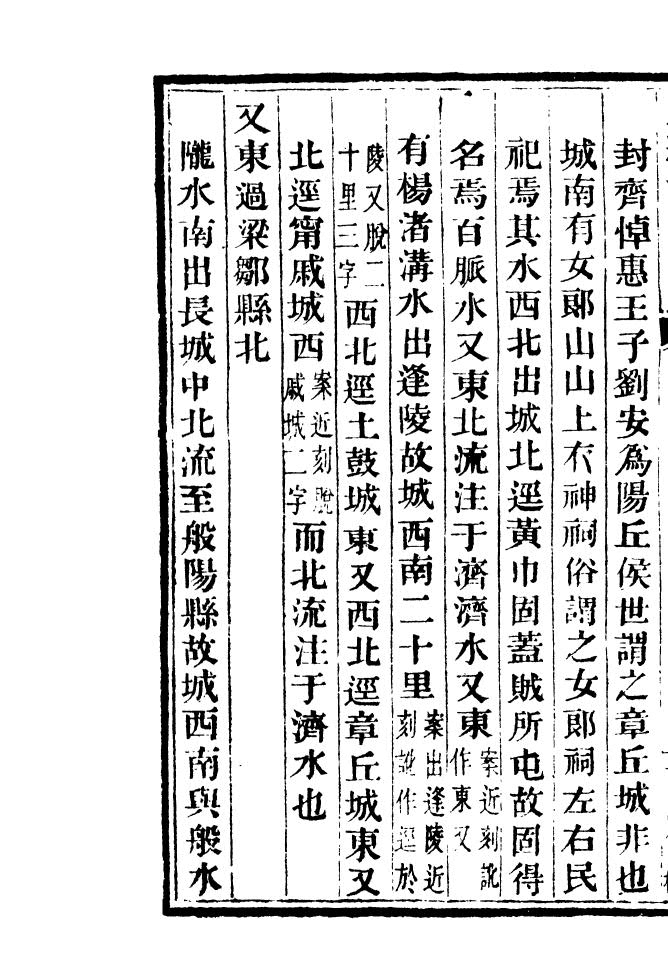 封齊悼惠王子劉安爲陽丘侯世謂之章丘城非也
城南有女郞山山上有神祠俗謂之女郞祠左右民
祀焉其水西北出城北逕黃巾固蓋賊所屯故固得
名焉百脈水又東北流注于濟濟水又東案近刻訛作東又
有楊渚溝水出逢陵故城西南二十里案出逢陵近刻訛作逕於
陵又脫二十里三字西北逕土鼓城東又西北逕章丘城東又
北逕甯戚城西案近刻脫戚城二字而北流注于濟水也
又東過梁鄒縣北
隴水南出長城中北流至般陽縣故城西南與般水